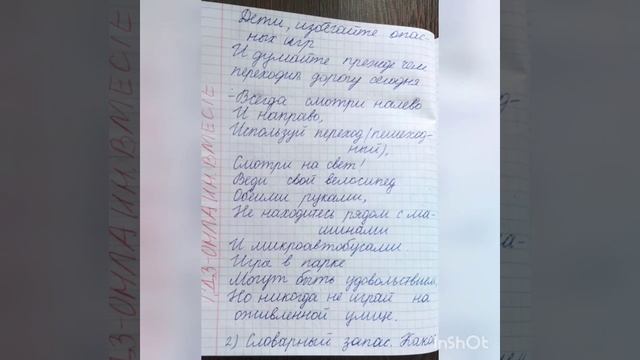 Дети, избегайте опас-
ных игр
И думайте прежде чем
переходил дорогу сегодня.
-Всегда смотри налево
И направо,
Используй переход (пешеход-
ный),
Смотри на свет!
Веди свой велосипед
Обеими руками,
Не находитесь рядом с ма-
шинами
И микроавтобусами
Игра в парке
Могут быть удовольствием,
Но никогда не играй на
оживленной улице.
2) Словарный запас. Какой
ДЗ-ОНЛАЙН ВМЕСТЕ
InShOt